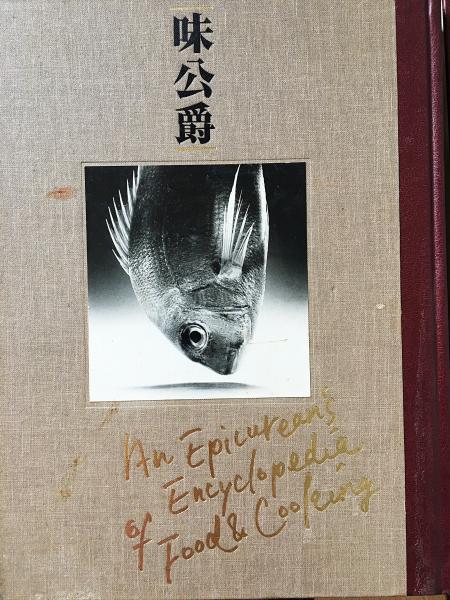 味公爵
An Epicurean's
Encyclopedia
of Food & Cooking